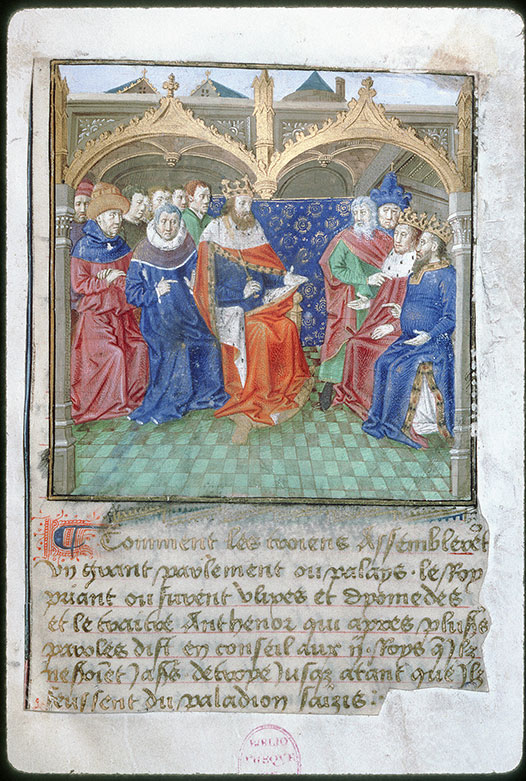 Comment les troiens Assemblerēt
vn grant parlement ou palays. le Roy
priant ou furent vlixes et dyomedes
et le traitre Anthenor qui apres pluss
paroles dist en conseil aux ij. Roys q̄ Ilz
ne
de troye Jusqz atant que Ilz
feussent du paladion saizis.
BIBLIO
THEQUE